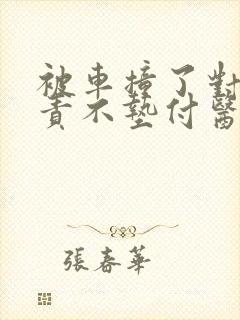 被車撞了對
責不墊付醫
張春華